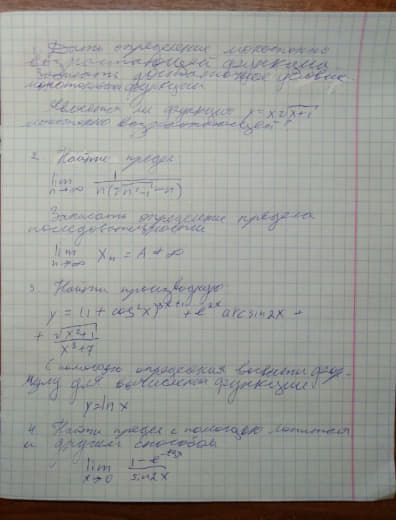 1. Дать определение монотонно
возрастающей функции
Записать достаточное условие
монотонности функции
Является ли функция y = x√x+1
монотонно возрастающей?
2. Найти предел
lim n→∞ 1/(n(√n²-1 - n))
Записать определение предела
последовательности
lim n→∞ Xn = A ≠ ∞
3. Найти производную
y = (1 + cos²x) + e arcsin2x +
+ √x²+1 / x³+7
С помощью определения вывести фор-
мулу для вычисления функции
y = ln x
4. Найти предел с помощью Лопиталя
и другим способом
lim x→0 1-e / sin2x